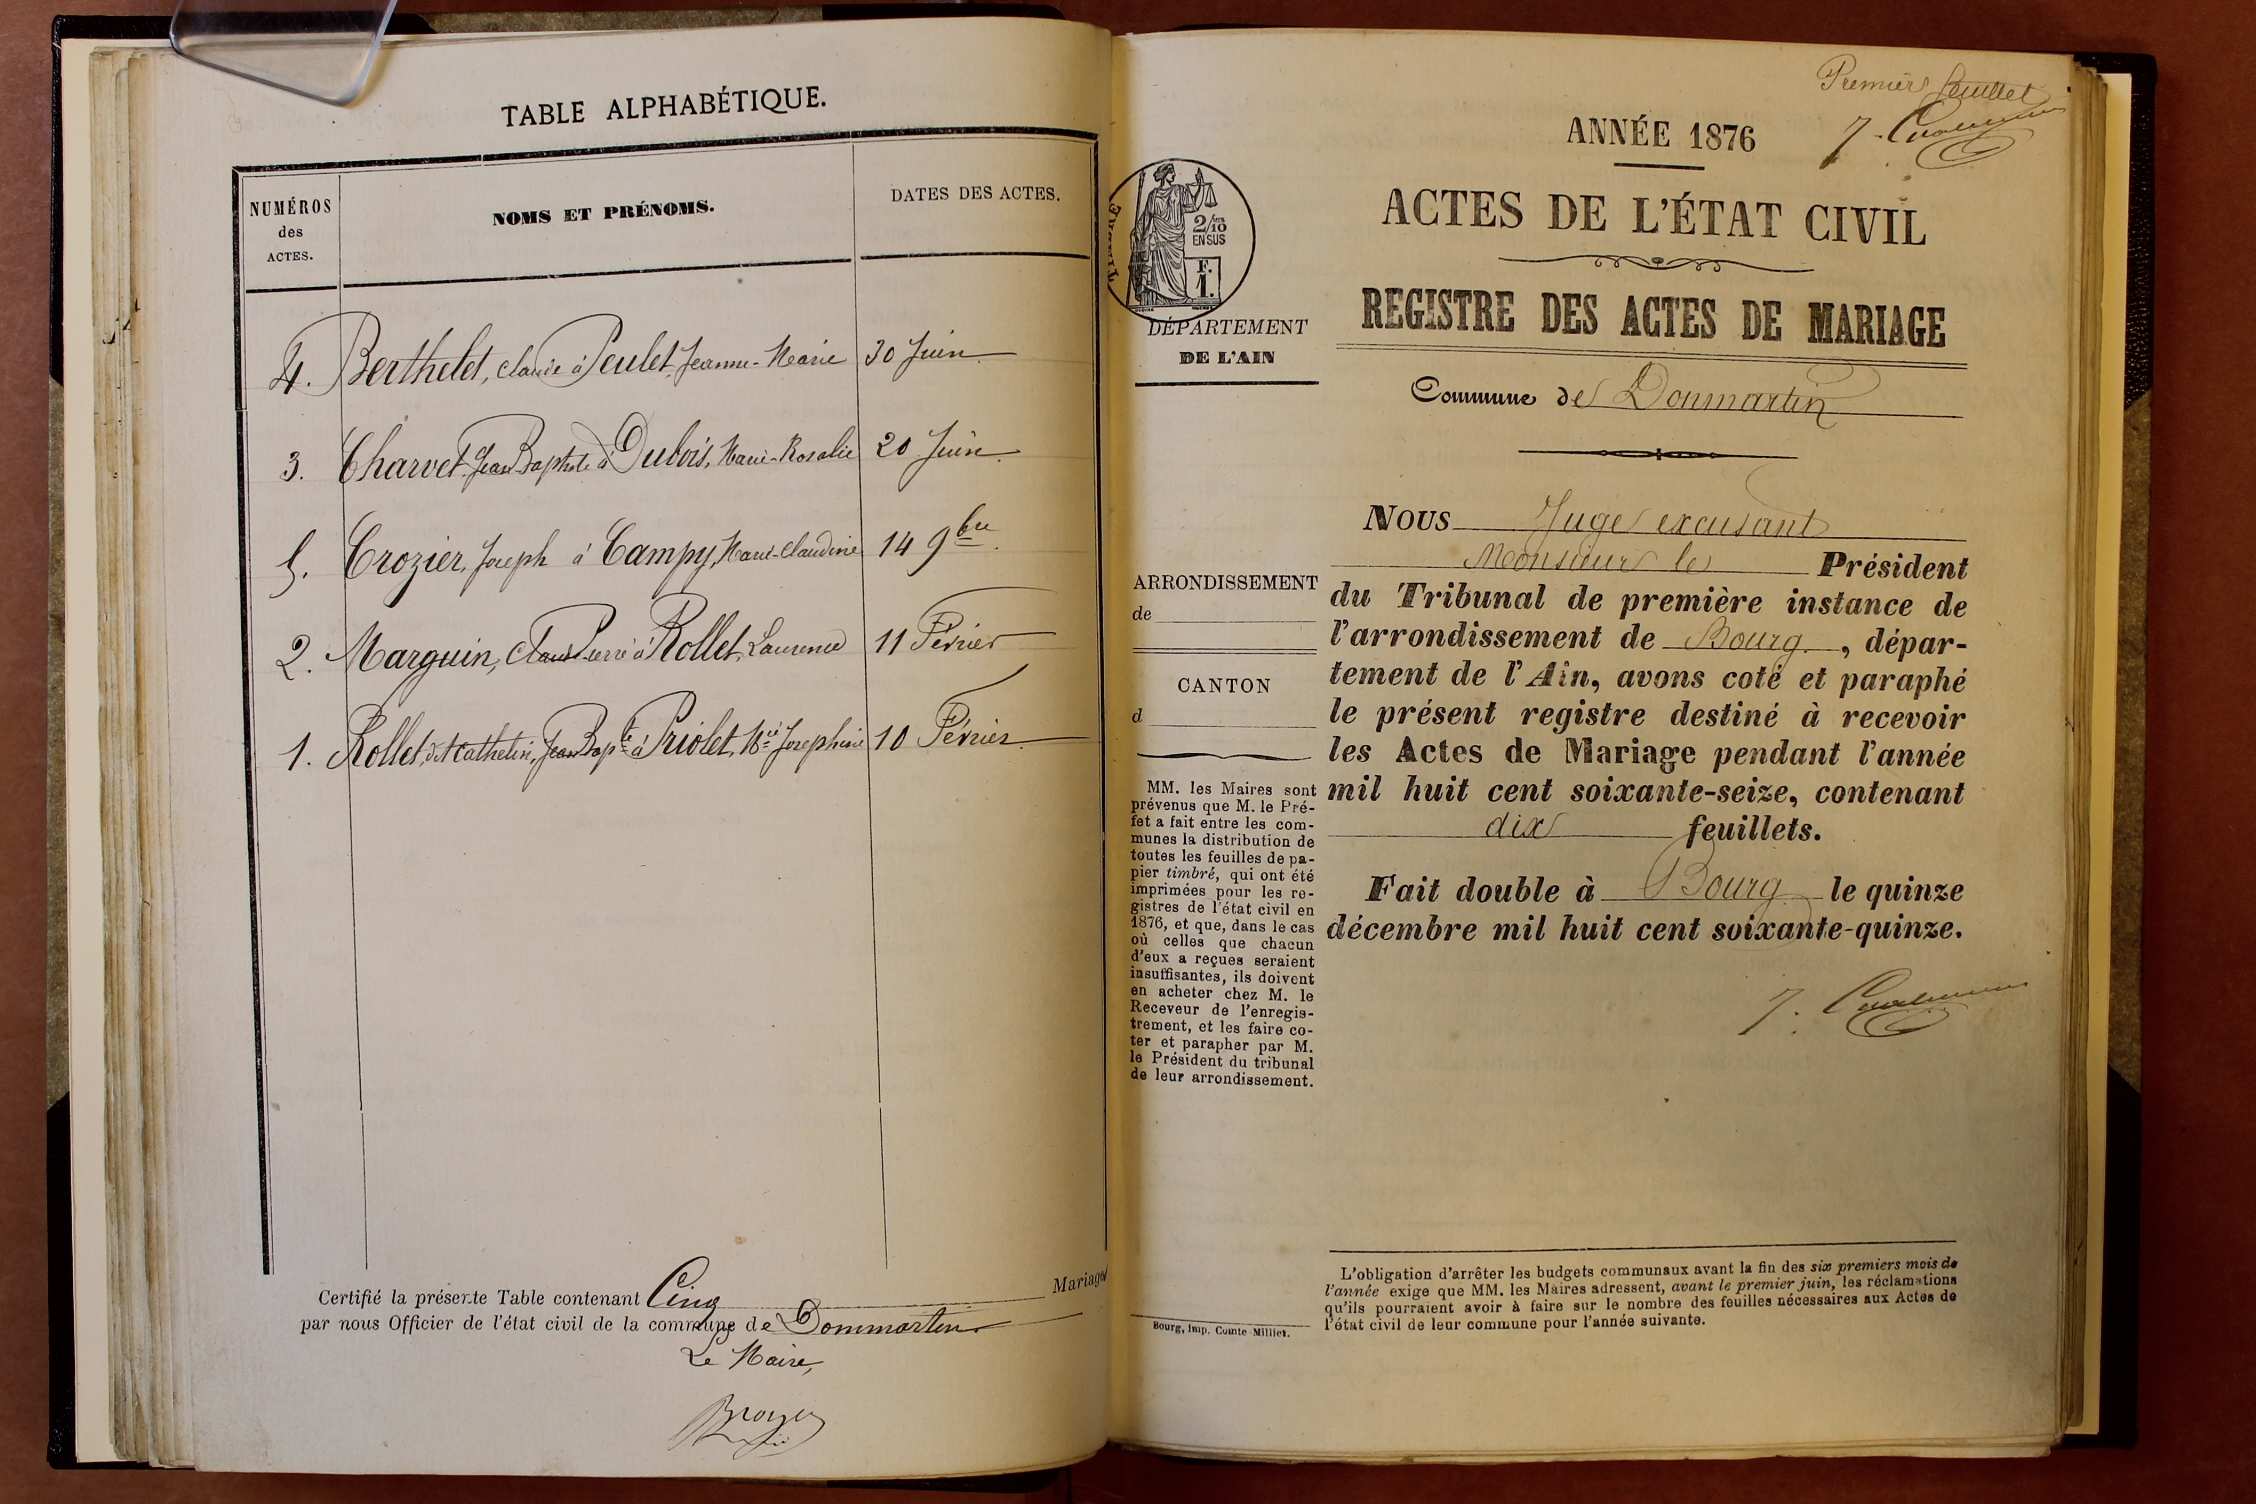 TABLE ALPHABÉTIQUE.
NUMÉROS
des
ACTES.
NOMS ET PRÉNOMS.
DATES DES ACTES.
4. Berthelet, Claude à Peulet, Jeanne-Marie 30 Juin.
3. Charvet, Jean Baptiste à Dubois, Marie-Rosalie 20 Juin.
5. Crozier, Joseph à Campy, Marie-Claudine 14 9bre.
2. Marguin, Claude Pierre à Rollet, Laurence 11 Février
1. Rollet, dit Mathelin, Jean Bapte à Priolet, Mie Josephine 10 Février.
Certifié la présente Table contenant Cinq Mariages
par nous Officier de l'état civil de la commune de Dommartin.
Le Maire,
Broyer
Premier feuillet
ANNÉE 1876
ACTES DE L'ÉTAT CIVIL
REGISTRE DES ACTES DE MARIAGE
Commune de Donmartin
2/10
EN SUS
F.
1.
DÉPARTEMENT
DE L'AIN
ARRONDISSEMENT
de
CANTON
d
MM. les Maires sont
prévenus que M. le Pré-
fet a fait entre les com-
munes la distribution de
toutes les feuilles de pa-
pier timbré, qui ont été
imprimées pour les re-
gistres de l'état civil en
1876, et que, dans le cas
où celles que chacun
d'eux a reçues seraient
insuffisantes, ils doivent
en acheter chez M. le
Receveur de l'enregis-
trement, et les faire co-
ter et parapher par M.
le Président du tribunal
de leur arrondissement.
Bourg, imp. Comte-Milliet.
Nous Juge excusant
Monsieur le Président
du Tribunal de première instance de
l'arrondissement de Bourg, dépar-
tement de l'Ain, avons coté et paraphé
le présent registre destiné à recevoir
les Actes de Mariage pendant l'année
mil huit cent soixante-seize, contenant
dix feuillets.
Fait double à Bourg le quinze
décembre mil huit cent soixante-quinze.
L'obligation d'arrêter les budgets communaux avant la fin des six premiers mois de
l'année exige que MM. les Maires adressent, avant le premier juin, les réclamations
qu'ils pourraient avoir à faire sur le nombre des feuilles nécessaires aux Actes de
l'état civil de leur commune pour l'année suivante.